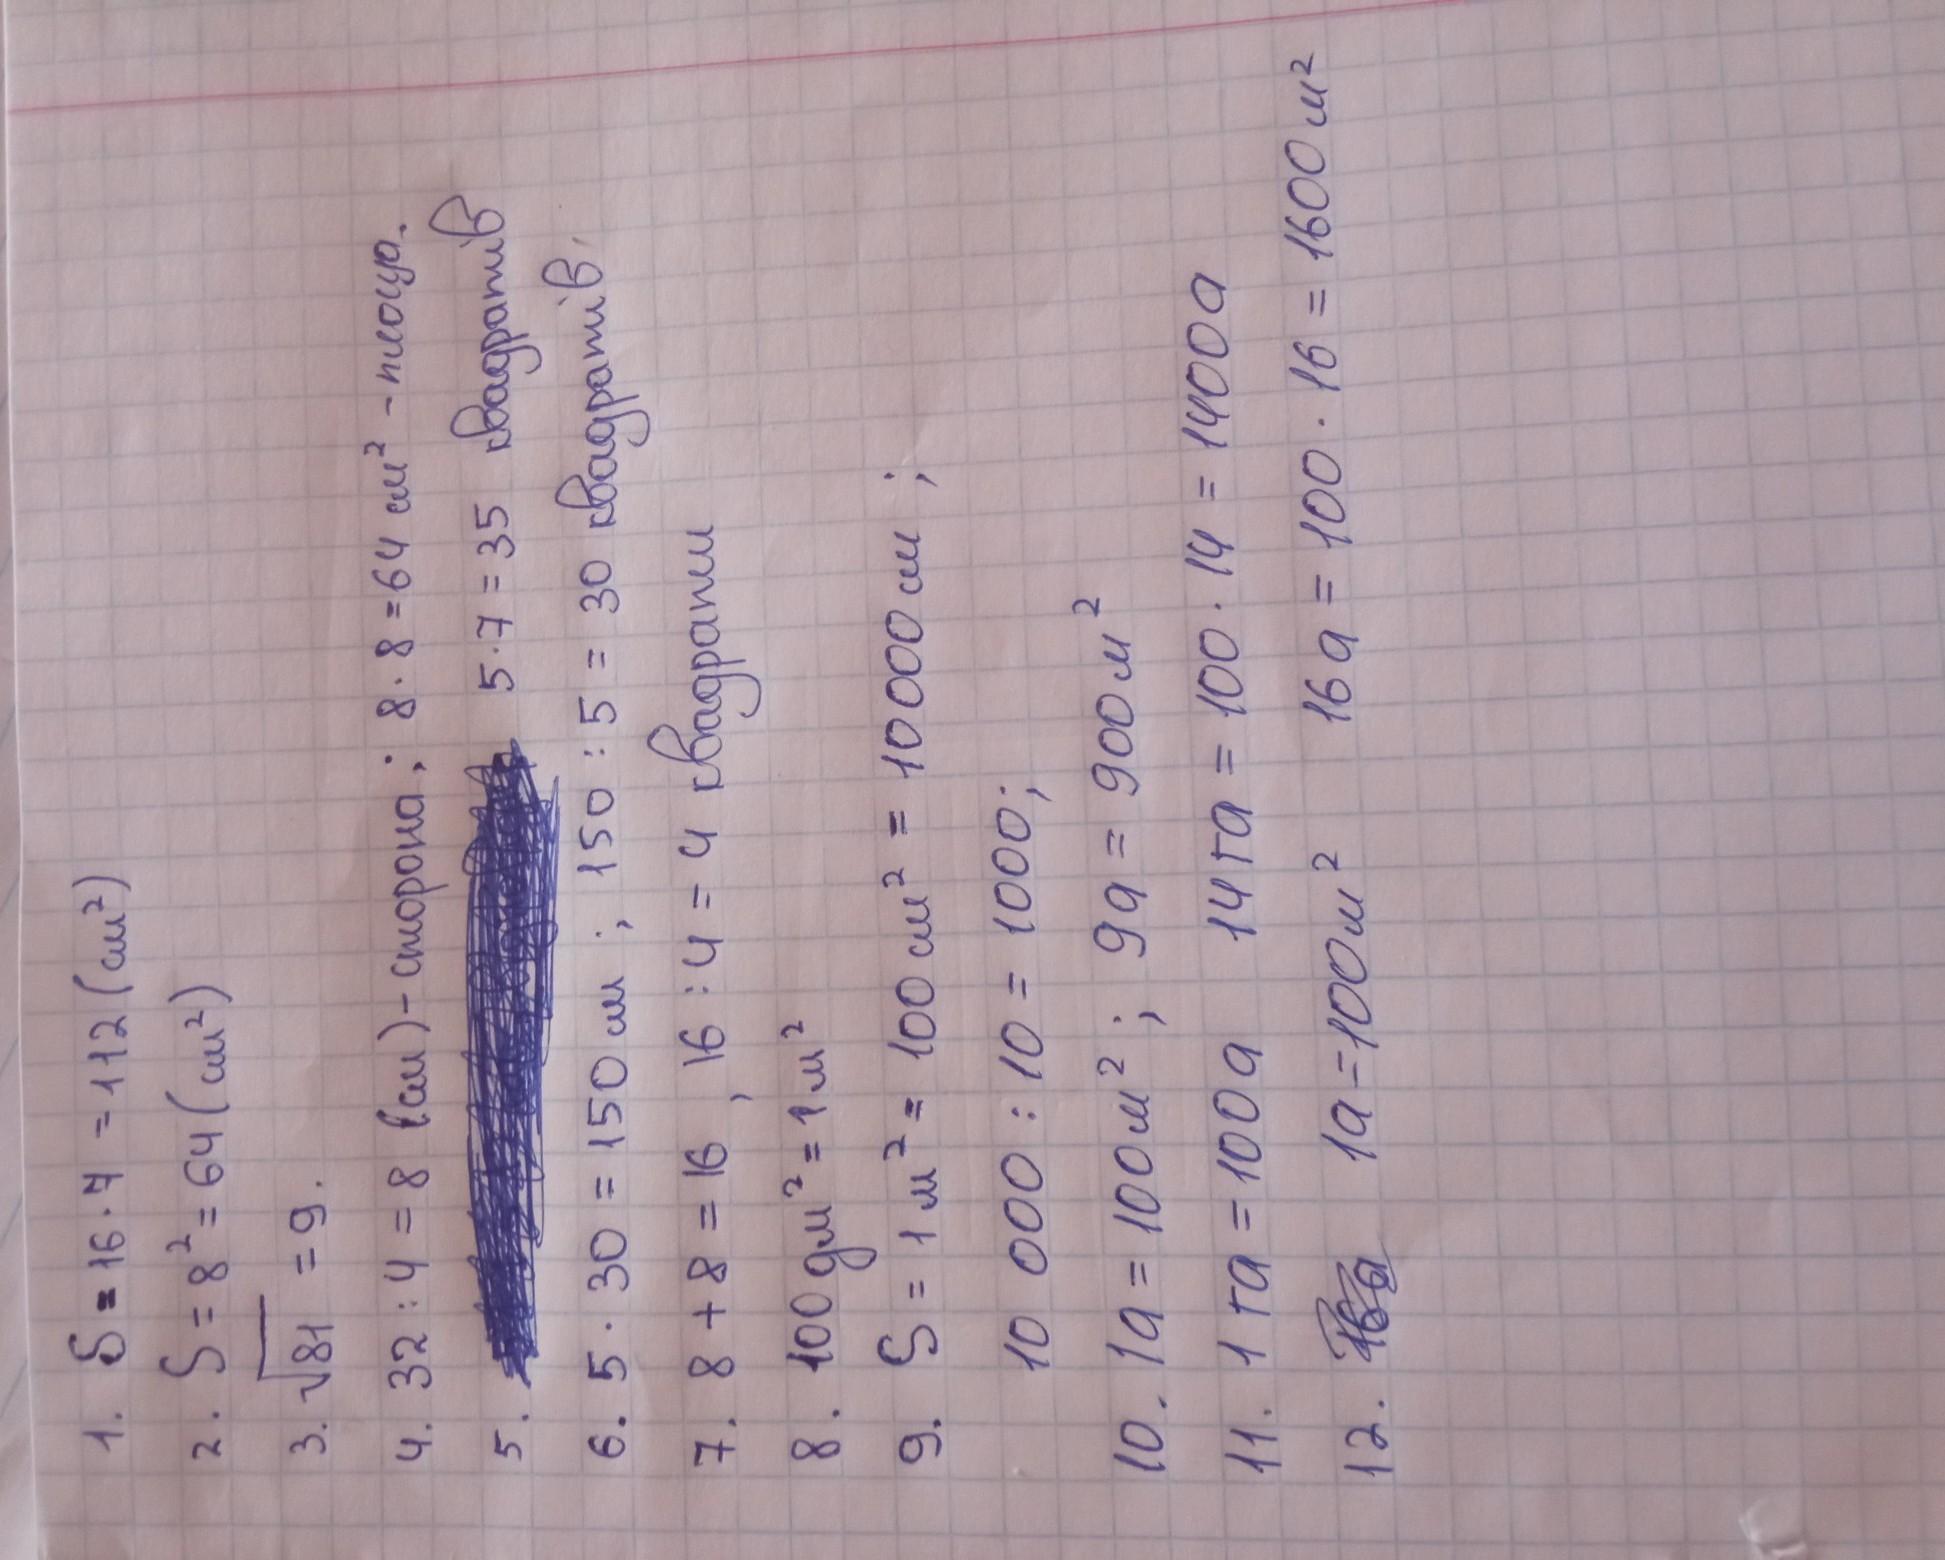 1. S = 16 · 7 = 112 (см²)
2. S = 8² = 64 (см²)
3. √81 = 9.
4. 32 : 4 = 8 (см) - сторона; 8 · 8 = 64 см² - площа.
5. 5 · 7 = 35 квадратів
6. 5 · 30 = 150 см ; 150 : 5 = 30 квадратів.
7. 8 + 8 = 16 , 16 : 4 = 4 квадрати
8. 100 дм² = 1 м²
9. S = 1 м² = 100 см² = 10000 см ;
10 000 : 10 = 1000;
10. 1а = 100 м² ; 9а = 900 м²
11. 1 га = 100 а 14 га = 100 · 14 = 1400 а
12. 1а = 100 м² 16 а = 100 · 16 = 1600 м²